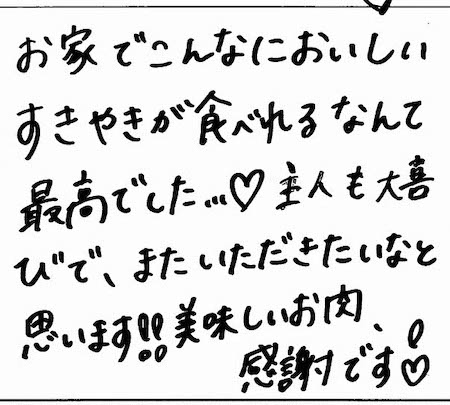 お家でこんなにおいしい
すきやきが食べれるなんて
最高でした...♡主人も大喜
びで、またいただきたいなと
思います!!美味しいお肉、
感謝です!♡